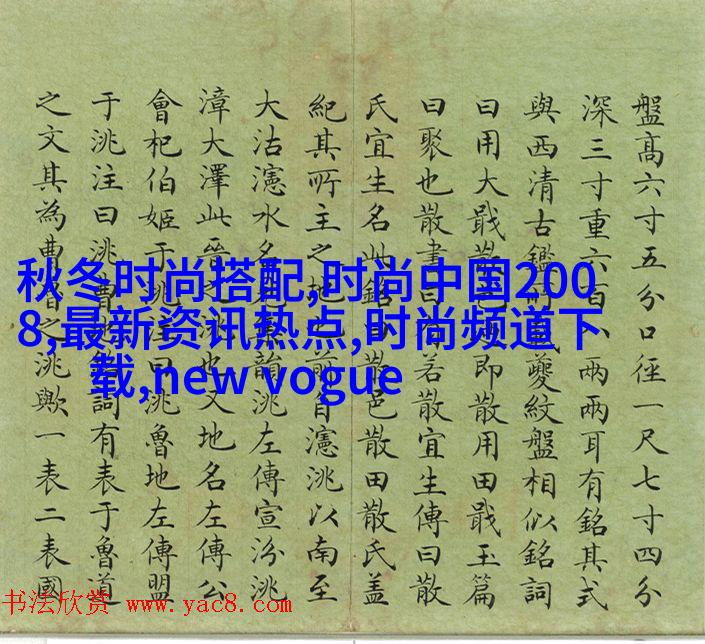 盤高六寸五分口徑一尺七寸四分
深三寸重六百八兩兩耳有銘其式
與西清古鑑夔紋盤相似銘詞
曰用大戢散即散用田戢玉篇
曰聚也散書曰有若散宜生傳曰散
氏宜生名此銘曰散邑散田散氏蓋
紀其所主之地也前自瀗洮以南至
大沽瀗水名見集韻洮左傳宣汾洮
漳大澤此晉之洮也又地名左傳公
會杞伯姬于洮注曰洮魯地左傳盟
于洮注曰洮曹地銘詞有表于魯道
之文其為曹魯之洮歟一表二表國
秋冬时尚搭配,时尚中国200
8,最新资讯热点,时尚频道下
载,new vogue
书法欣赏 www.yac8.com